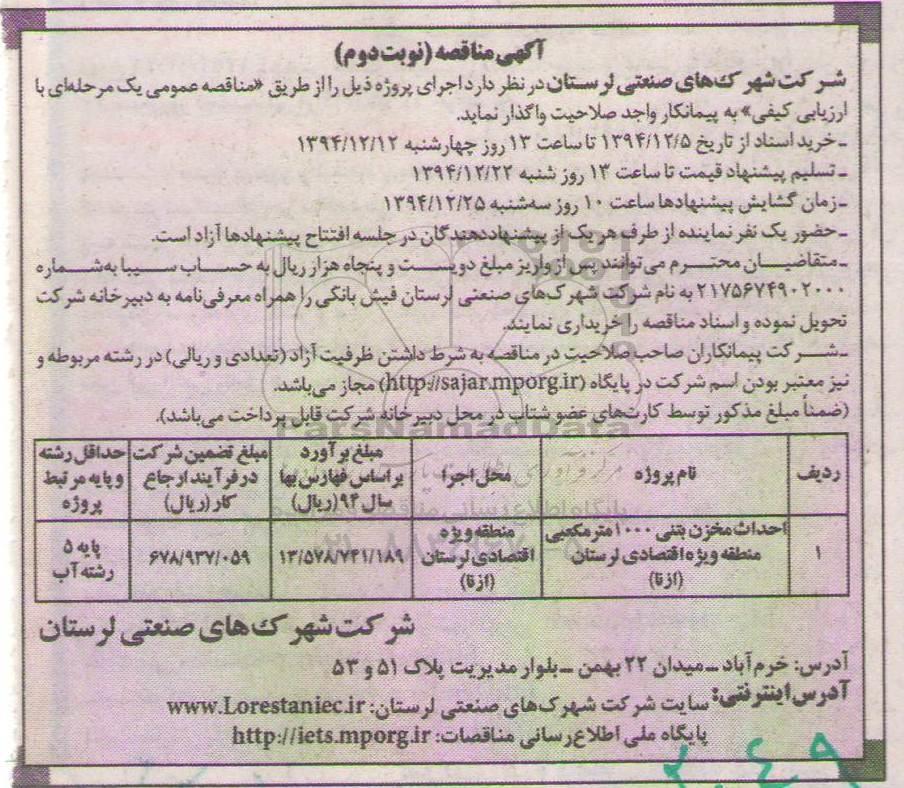 آگهی مناقصه (نوبت دوم)
شرکت شهرک‌های صنعتی لرستان در نظر دارد اجرای پروژه ذیل را از طریق «مناقصه عمومی یک مرحله‌ای با
ارزیابی کیفی» به پیمانکار واجد صلاحیت واگذار نماید.
ـ خرید اسناد از تاریخ ۱۳۹۴/۱۲/۵ تا ساعت ۱۳ روز چهارشنبه ۱۳۹۴/۱۲/۱۲
ـ تسلیم پیشنهاد قیمت تا ساعت ۱۳ روز شنبه ۱۳۹۴/۱۲/۲۲
ـ زمان گشایش پیشنهادها ساعت ۱۰ روز سه‌شنبه ۱۳۹۴/۱۲/۲۵
ـ حضور یک نفر نماینده از طرف هر یک از پیشنهاددهندگان در جلسه افتتاح پیشنهادها آزاد است.
ـ متقاضیان محترم می‌توانند پس از واریز مبلغ دویست و پنجاه هزار ریال به حساب سیبا به‌شماره
۲۱۷۵۶۷۴۹۰۲۰۰۰ به نام شرکت شهرک‌های صنعتی لرستان فیش بانکی را همراه معرفی‌نامه به دبیرخانه شرکت
تحویل نموده و اسناد مناقصه را خریداری نمایند.
ـ شرکت پیمانکاران صاحب صلاحیت در مناقصه به شرط داشتن ظرفیت آزاد (تعدادی و ریالی) در رشته مربوطه و
نیز معتبر بودن اسم شرکت در پایگاه (http://sajar.mporg.ir) مجاز می‌باشد.
(ضمناً مبلغ مذکور توسط کارت‌های عضو شتاب در محل دبیرخانه شرکت قابل پرداخت می‌باشد).
ParsNamadData
ردیف
نام پروژه
محل اجرا
مبلغ برآورد
براساس فهارس بها
سال ۹۴ (ریال)
مبلغ تضمین شرکت
در فرآیند ارجاع
کار (ریال)
حداقل رشته
و پایه مرتبط
پروژه
۱
احداث مخزن بتنی ۱۰۰۰ مترمکعبی
منطقه ویژه اقتصادی لرستان
(ازنا)
منطقه ویژه
اقتصادی لرستان
(ازنا)
۱۳/۵۷۸/۷۴۱/۱۸۹
۶۷۸/۹۳۷/۰۵۹
پایه ۵
رشته آب
شرکت شهرک‌های صنعتی لرستان
آدرس: خرم‌آباد ـ میدان ۲۲ بهمن ـ بلوار مدیریت پلاک ۵۱ و ۵۳
آدرس اینترنتی: سایت شرکت شهرک‌های صنعتی لرستان: www.Lorestaniec.ir
پایگاه ملی اطلاع‌رسانی مناقصات: http://iets.mporg.ir